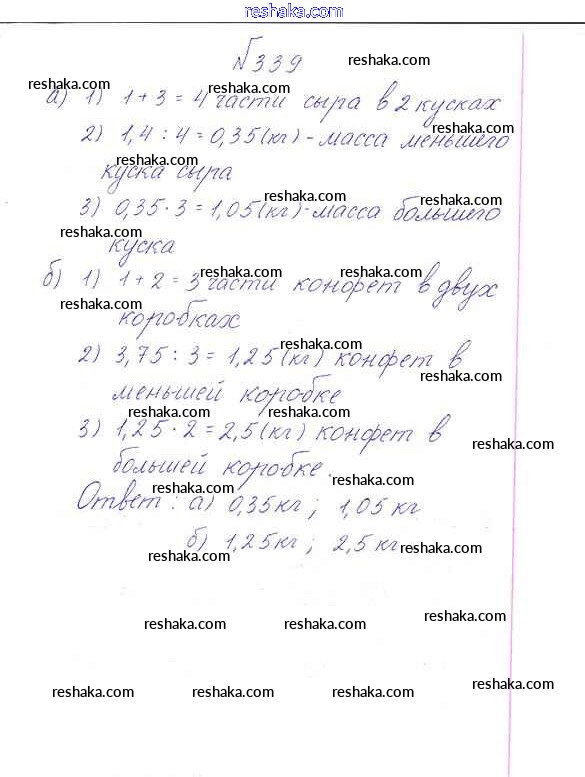 reshaka.com
№339 reshaka.com
reshaka.com reshaka.com
а) 1) 1+3=4 части сыра в 2 кусках
reshaka.com
2) 1,4:4=0,35(кг)-масса меньшего
reshaka.com
куска сыра
reshaka.com reshaka.com
3) 0,35·3=1,05(кг)-масса большего
reshaka.com
куска
reshaka.com reshaka.com
б) 1) 1+2=3 части конфет в двух
reshaka.com
коробках
reshaka.com
2) 3,75:3=1,25(кг) конфет в
reshaka.com
меньшей коробке
reshaka.com reshaka.com
3) 1,25·2=2,5(кг) конфет в
reshaka.com
большей коробке.
reshaka.com reshaka.com
Ответ: а) 0,35кг; 1,05 кг
б) 1,25кг; 2,5 кг
reshaka.com reshaka.com
reshaka.com reshaka.com reshaka.com
reshaka.com reshaka.com reshaka.com reshaka.com